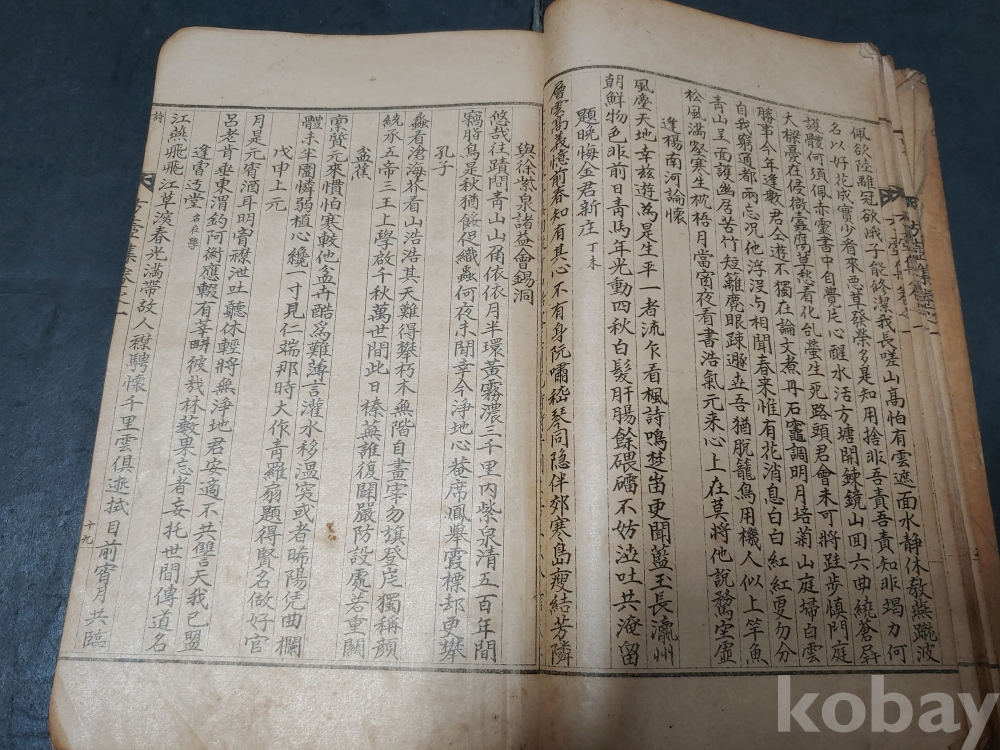 佩欲陸離冠欲峨子能修潔我長嗟山高怕有雲遮面水静休敎燕蹴波
名以好花成實少看來惡草發榮多是知用捨非吾責吾責知非竭力何
護體何須佩赤靈書中自覺片心醒水活方塘開鍊鏡山回六曲繞蒼屛
大樑憂在侵微蠧腐草愁看化乱螢生死路頭君會未可將跬步愼門庭
勝事今年逢數君全遊不獨在論文煮丹石竈調明月培菊山庭掃白雲
自我窮通都兩忘況他浮沒与相聞春来惟有花消息白白紅紅更勿分
靑山呈面護幽居苦竹短籬鹿眼疎遯世吾猶脫籠鳥用機人似上竿魚
松風滿壑寒生枕梧月當窓夜看書浩氣元来心上在莫將他說騖空虛
逢楊南河論懷
風塵天地幸玆遊爲是生平一者流乍看楓詩鳴楚岀更聞藍玉長瀛州
朝鮮物色非前日靑馬年光動四秋白髮肝腸餘磈礌不妨泣吐共淹留
題晩悔金君新庄 丁未
層雲高義憶前春知有其心不有身阮嘯嵇琴同隐伴郊寒島瘦結芳隣
與徐紫泉諸益會錫洞
悠哉往蹟問靑山角依依月半環黃霧濃三千里內紫泉淸五百年間
竊脂鳥是秋猶餒促織蟲何夜未閒幸今淨地心菴席鳳舉霞標却更攀
孔子
蠡看滄海芥看山浩浩其天難得攀朽木無階自畫宰勿旗登岸獨稱顔
統承五帝三王上學啟千秋萬世間此日榛蕪誰復闢嚴防設廌若重關
盆蕉
稟質元來惜怕寒較他盆卉酷爲難薄言灌水移温突或者晞陽凭曲欄
體未半圍憐弱植心纔一寸見仁端那時大作靑羅扇題得賢名做好官
戊申上元
月是元宵酒耳明嘗襟泄吐聽休輕將無淨地君安適不共讐天我已盟
呂老肯垂東渭釣阿衡應輟有莘畊彼哉林藪果忘者妄托世間傳道名
逢雷造堂 名在學
江燕飛飛江草淡春光滿帶故人襟騁懷千里雲俱逝拭目前宵月共臨
詩
十九